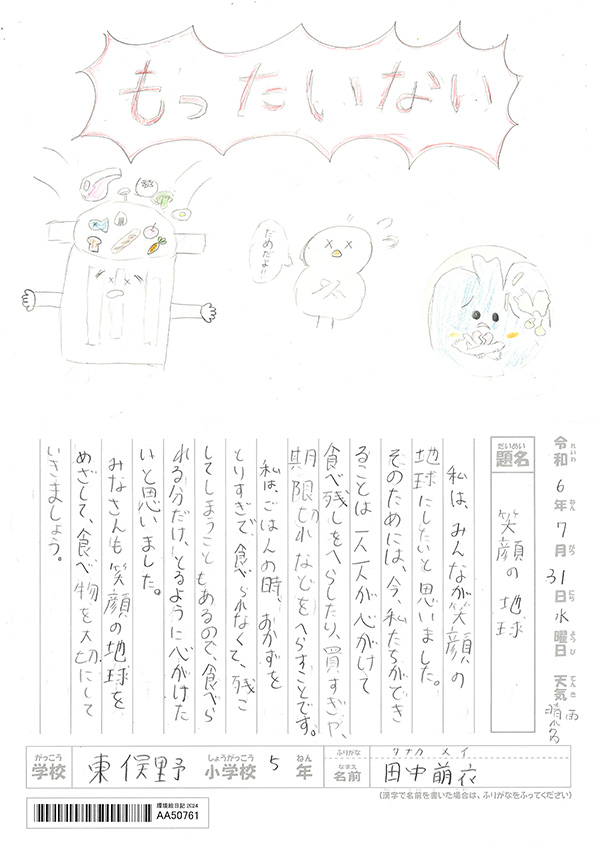 もったいない
だめだよ!!
令和6年7月31日水曜日 天気
れいわ ねん がつ にち ようび てんき
だいめい
題名
笑顔の地球
私は、みんなが笑顔の
地球にしたいと思いました。
そのためには、今、私たちができ
ることは一人一人が心がけて
食べ残しをへらしたり、買すぎや、
期限切れなどをへらすことです。
私は、ごはんの時、おかずを
とりすぎて、食べられなくて、残こ
してしまうこともあるので、食べら
れる分だけ、とるように心がけた
いと思いました。
みなさんも笑顔の地球を
めざして、食べ物を大切にして
いきましょう。
がっこう しょうがっこう ねん
学校 東俣野 小学校 5年
ふりがな タナカ メイ
なまえ
名前 田中萌衣
(漢字で名前を書いた場合は、ふりがなをふってください)
環境絵日記2024
AA50761